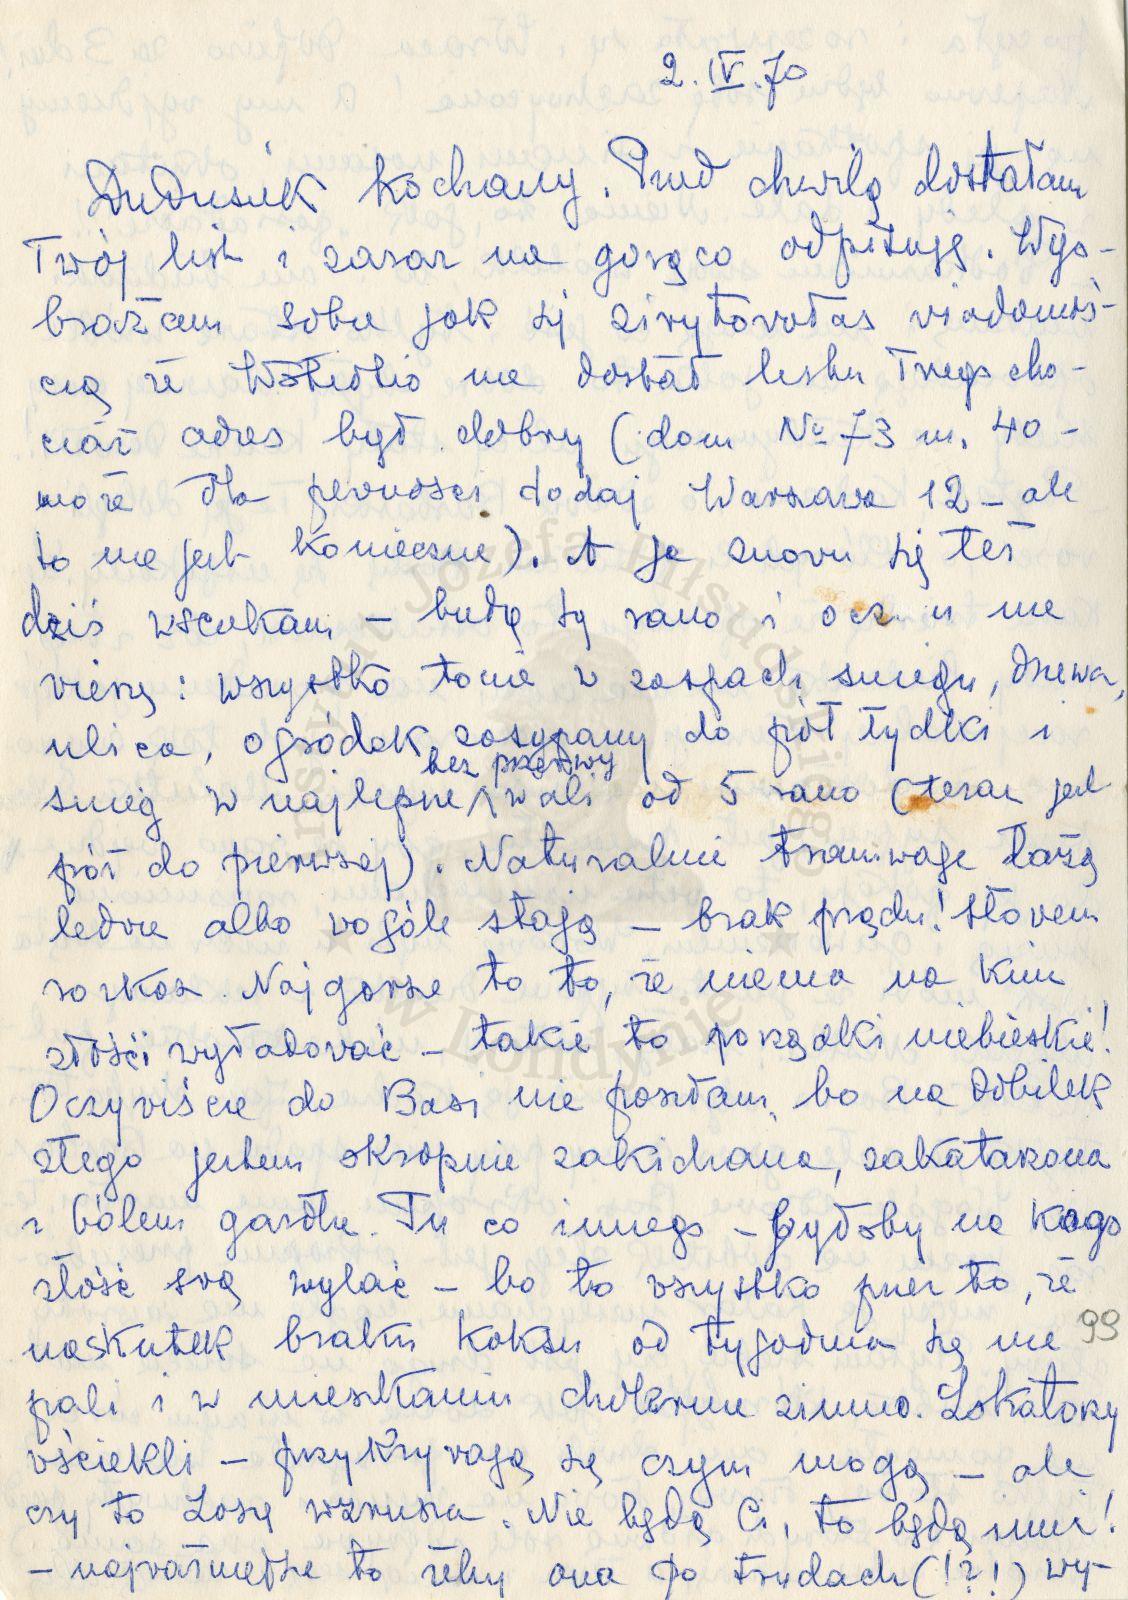 2.IV.70
Dudusiek kochany. Przed chwilą dostałam
Twój list i zaraz na gorąco odpisuję. Wyo-
brażam sobie jak się zirytowałaś wiadomoś-
cią że nie dostał listu Twego cho-
ciaż adres był dobry (dom № 73 m. 40 -
może dla pewności dodaj Warszawa 12 - ale
to nie jest konieczne). A ja znowu się też
dziś wściekam - budzę się rano i oczu nie
wierzę: wszystko tonie w zaspach śniegu, drzewa,
ulica, ogródek zasypany do pół łydki i
śnieg w najlepsze bez przerwy wali od 5 rano (teraz jest
pół do pierwszej). Naturalnie tramwaje łażą
ledwie albo wogóle stają - brak prądu! Słowem
rozkosz. Najgorsze to to, że niema na kim
złości wyładować - takie to porządki niebieskie!
Oczywiście do Basi nie poszłam, bo na dobitek
złego jestem okropnie zakichana, zakatarzona
z bólem gardła. Tu co innego - byłoby na kogo
złość swą wylać - bo to wszystko przez to, że
naskutek braku koksu od tygodnia się nie
pali i w mieszkaniu cholernie zimno. Lokatorzy
wściekli - przykrywają się czym mogą - ale
czy to Zosię wzrusza. Nie będą Ci, to będą inni!
- najważniejsze to żeby ona po trudach (!?!) wy-
99
Instytut Józefa Piłsudskiego
w Londynie